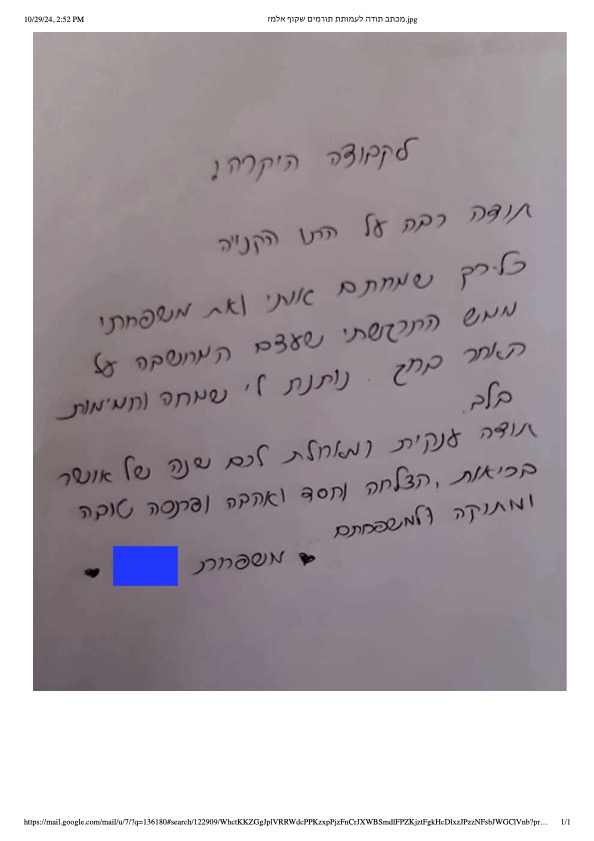 10/29/24, 2:52 PM
מכתב תודה לעמותת תורמים שקוף אלמז.jpg
לקבוצה היקרה!
תודה רבה על תו הקנייה
כל-כך שמחתם אותי ואת משפחתי
ממש התרגשתי שעצם המחשבה על
האחר בחג. נותנת לי שמחה וחמימות
בלב
תודה ענקית ומאחלת לכם שנה של אושר
בריאות, הצלחה וחסד ואהבה ופרנסה טובה
ומתוקה ולמשפחתם
משפחת
https://mail.google.com/mail/u/7/?q=136180#search/122909/
1/1